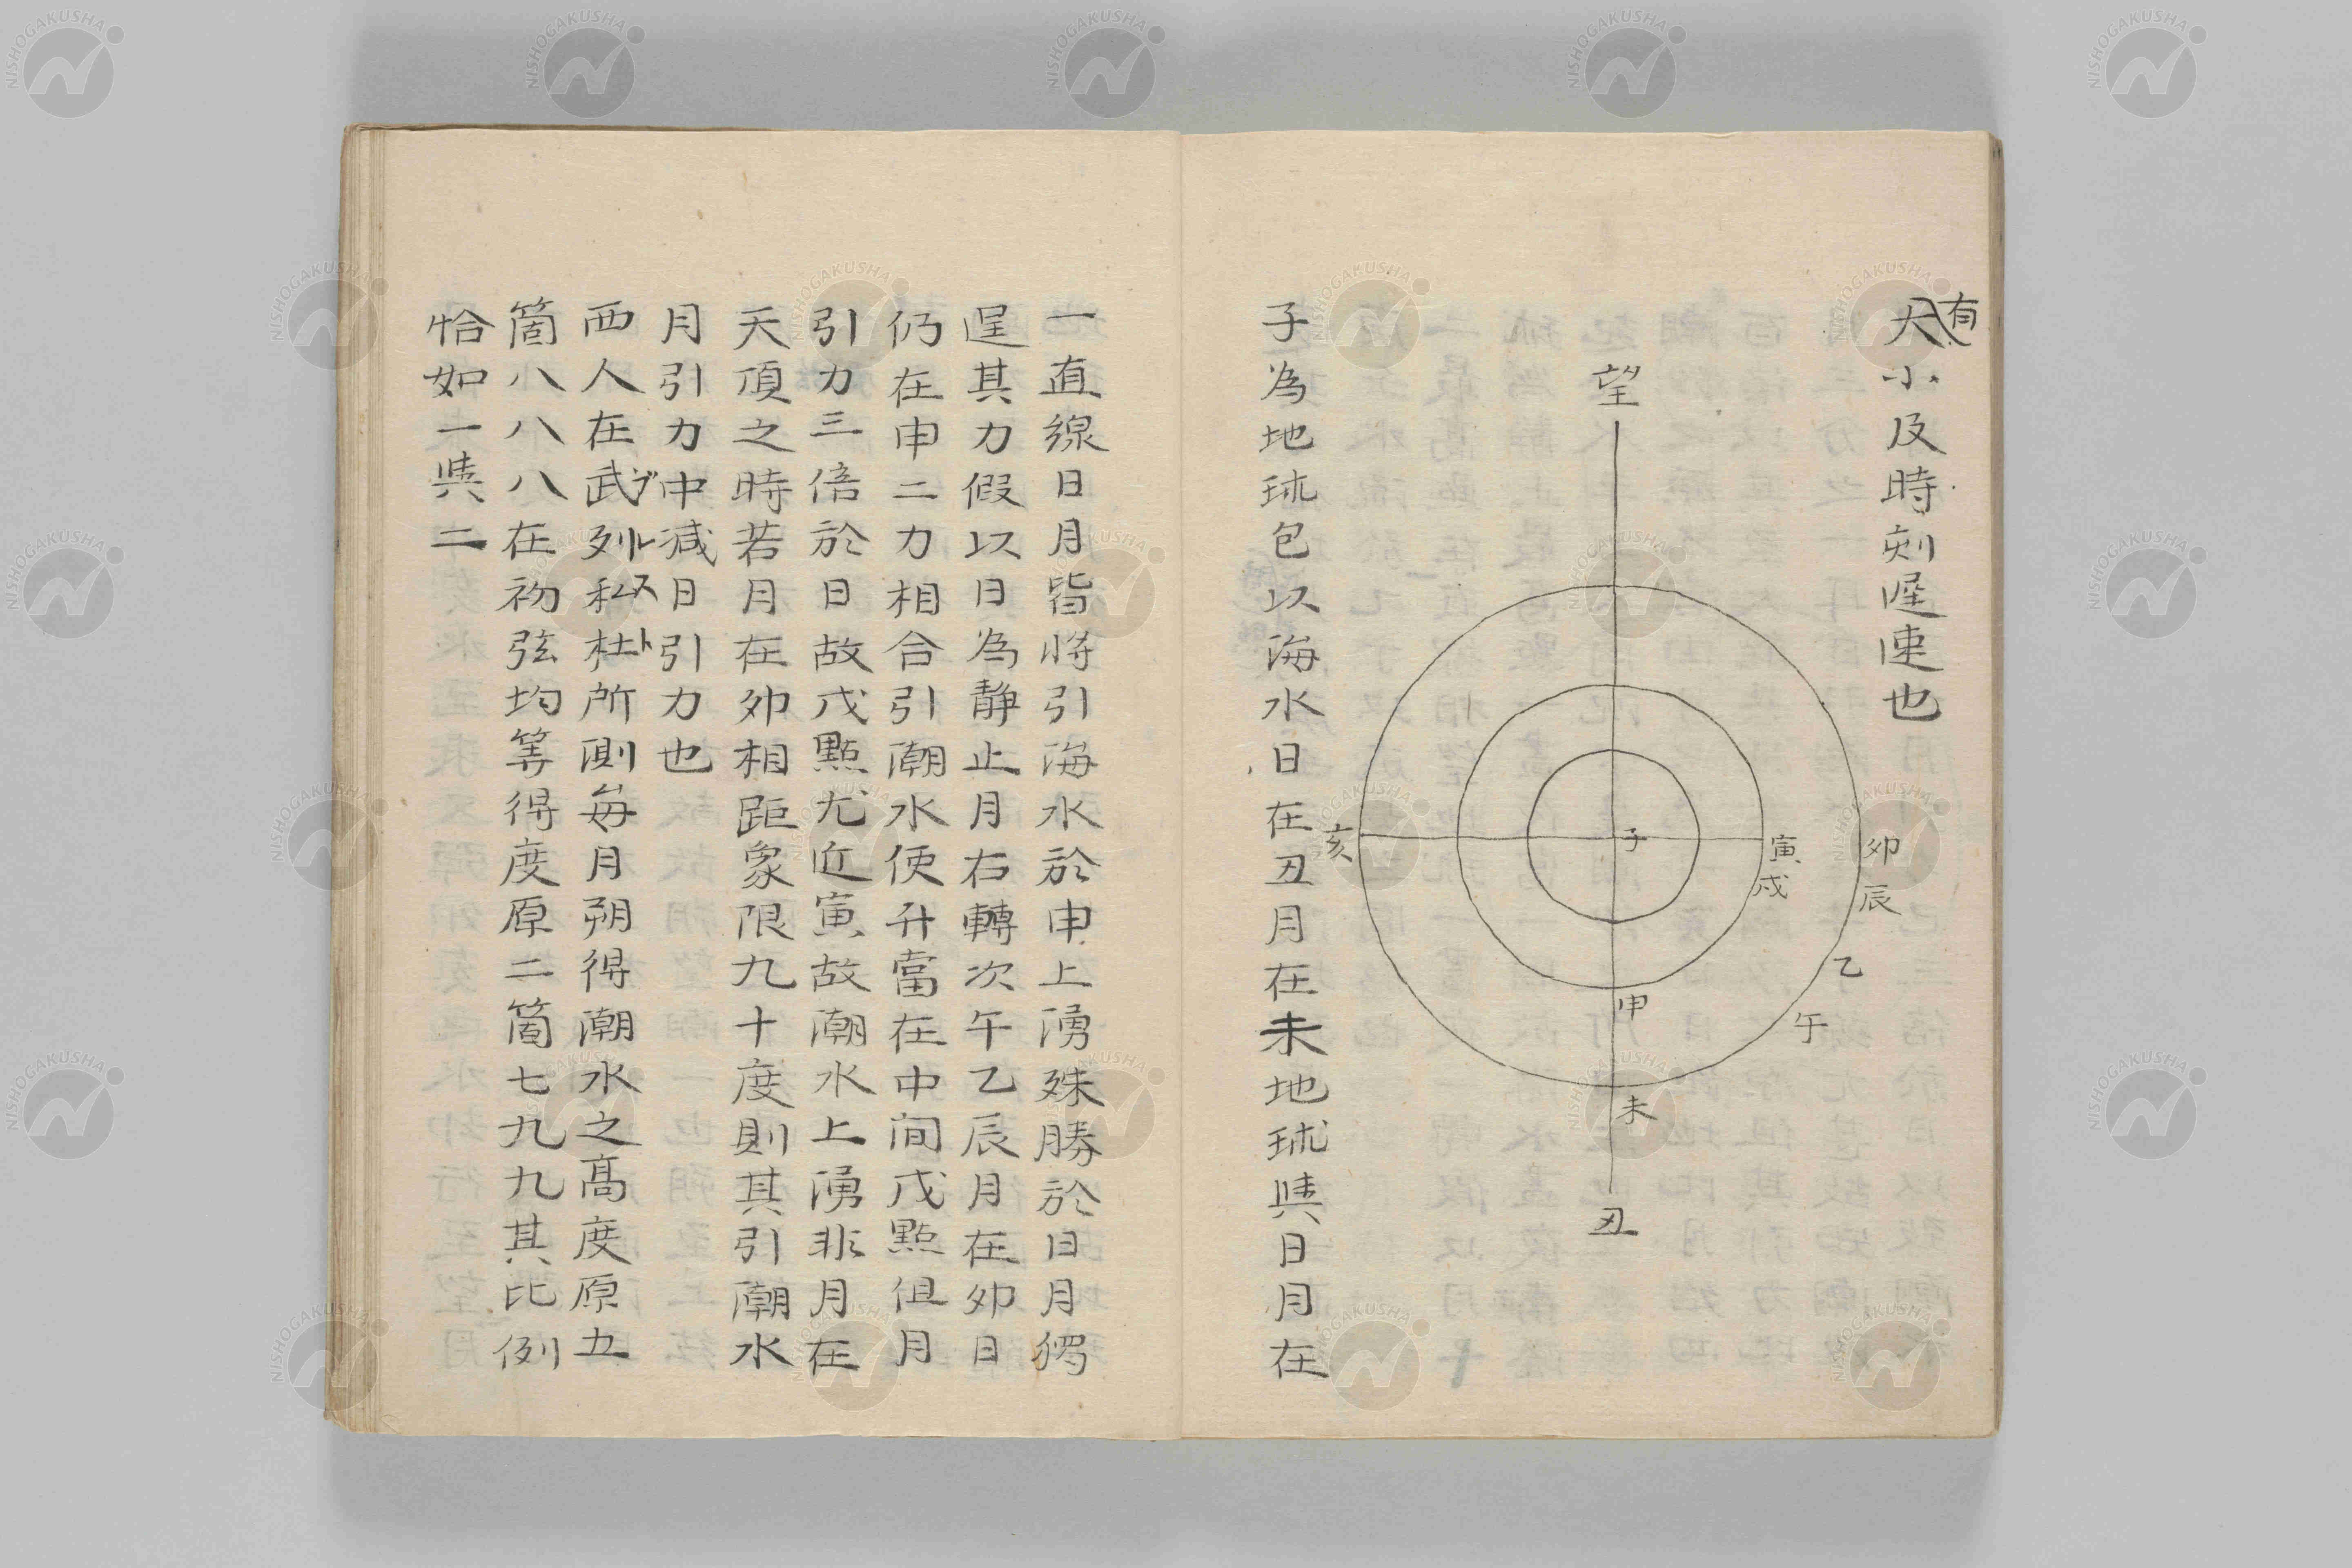 有
大小及時刻遲速也
望
子
亥
寅
戌
卯
辰
乙
午
申
未
丑
子為地球包以海水日在丑月在未地球與日月在
一直線日月皆將引海水於申上湧殊勝於日月獨
逞其力假以日為靜止月右轉次午乙辰月在卯日
仍在申二力相合引潮水使升當在中间戊點但月
引力三倍於日故戊點尤近寅故潮水上湧非月在
天頂之時若月在卯相距象限九十度則其引潮水
月引力中减日引力也
西人在武列私杜所測每月朔得潮水之高度原五
ブレスト
箇八八八在初弦均等得度原二箇七九九其比例
恰如一與二
NISHOGAKUSHA